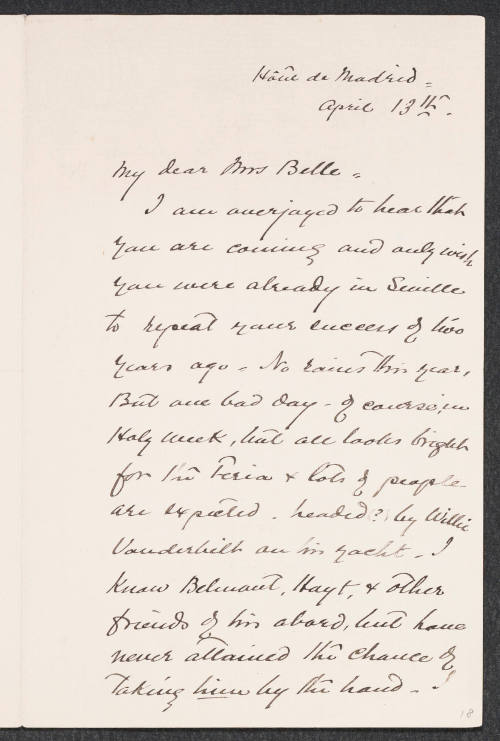 Hôtel de Madrid =
April 13th.
My dear Mrs Belle =
I am overjoyed to hear that
you are coming and only wish
you were already in Seville
to repeat your success of two
years ago = No rains this year,
But one bad day - of course, in
Holy week, but all looks bright
for the Feria & lots of people
are expected - headed (?) by Willie
Vanderbilt on his yacht - I
know Belmont, Hoyt, & other
friends of his aboard, but have
never attained the chance of
taking him by the hand - I
18